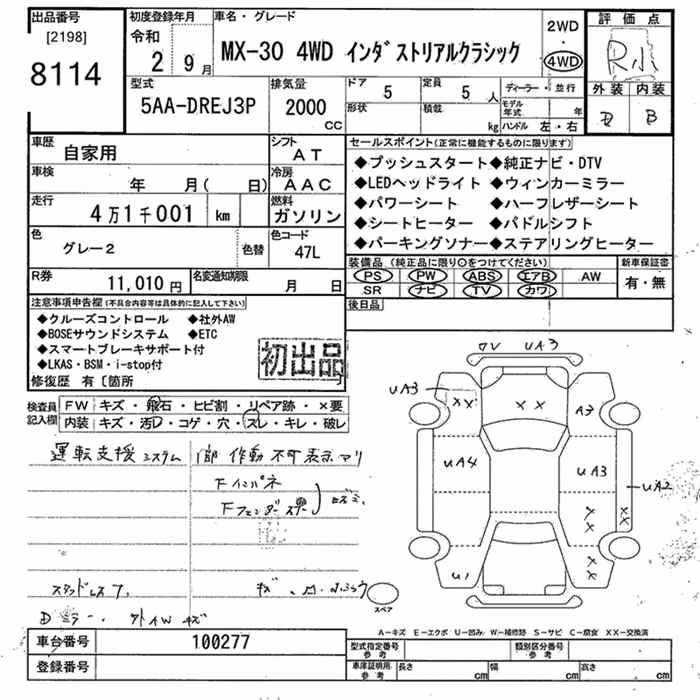 出品番号
[2198]
8114
初度登録年月
令和
2 9月
車名・グレード
MX-30 4WD インダストリアルクラシック
2WD
・
4WD
評価点
R
外装 内装
D B
型式
5AA-DREJ3P
排気量
2000
CC
ドア 5
定員 5 人
形状
積載 kg
ディーラー・並行
モデル年式 年
ハンドル 左・右
車歴
自家用
シフト
AT
車検
年 月( 日)
冷房
AAC
走行
4万1千001 km
燃料
ガソリン
色
グレー2
色替
色コード
47L
R券
11,010円
名変通知期限
月 日
セールスポイント(正常に機能するものに限ります)
◆プッシュスタート◆純正ナビ・DTV
◆LEDヘッドライト ◆ウィンカーミラー
◆パワーシート ◆ハーフレザーシート
◆シートヒーター ◆パドルシフト
◆パーキングソナー◆ステアリングヒーター
装備品(純正品に限り○をつけてください)
PS PW ABS エアB AW
SR ナビ TV カワ
新車保証書
有・無
後日品
注意事項申告欄(不具合内容等は具体的に記入して下さい)
◆クルーズコントロール ◆社外AW
◆BOSEサウンドシステム ◆ETC
◆スマートブレーキサポート付
◆LKAS・BSM・i-stop付
修復歴 有〔箇所
初出品
検査員記入欄
FW キズ・飛石・ヒビ割・リペア跡・×要
内装 キズ・汚レ・コゲ・穴・スレ・キレ・破レ
運転支援システム 一部作動不可表示アリ
Fインパネ
Fフェンダー
スタッドレス
Dミラー・ AWキズ
スペア
UA3
UA3
XX
XX
A3
UA4
UA3
UA2
XX
XX
XX
U1
A-キズ E-エクボ U-凹み W-補修跡 S-サビ C-腐食 XX-交換済
車台番号
100277
登録番号
型式指定番号
参考
類別区分番号
参考
車庫証明用
参考
長さ cm
幅 cm
高さ cm